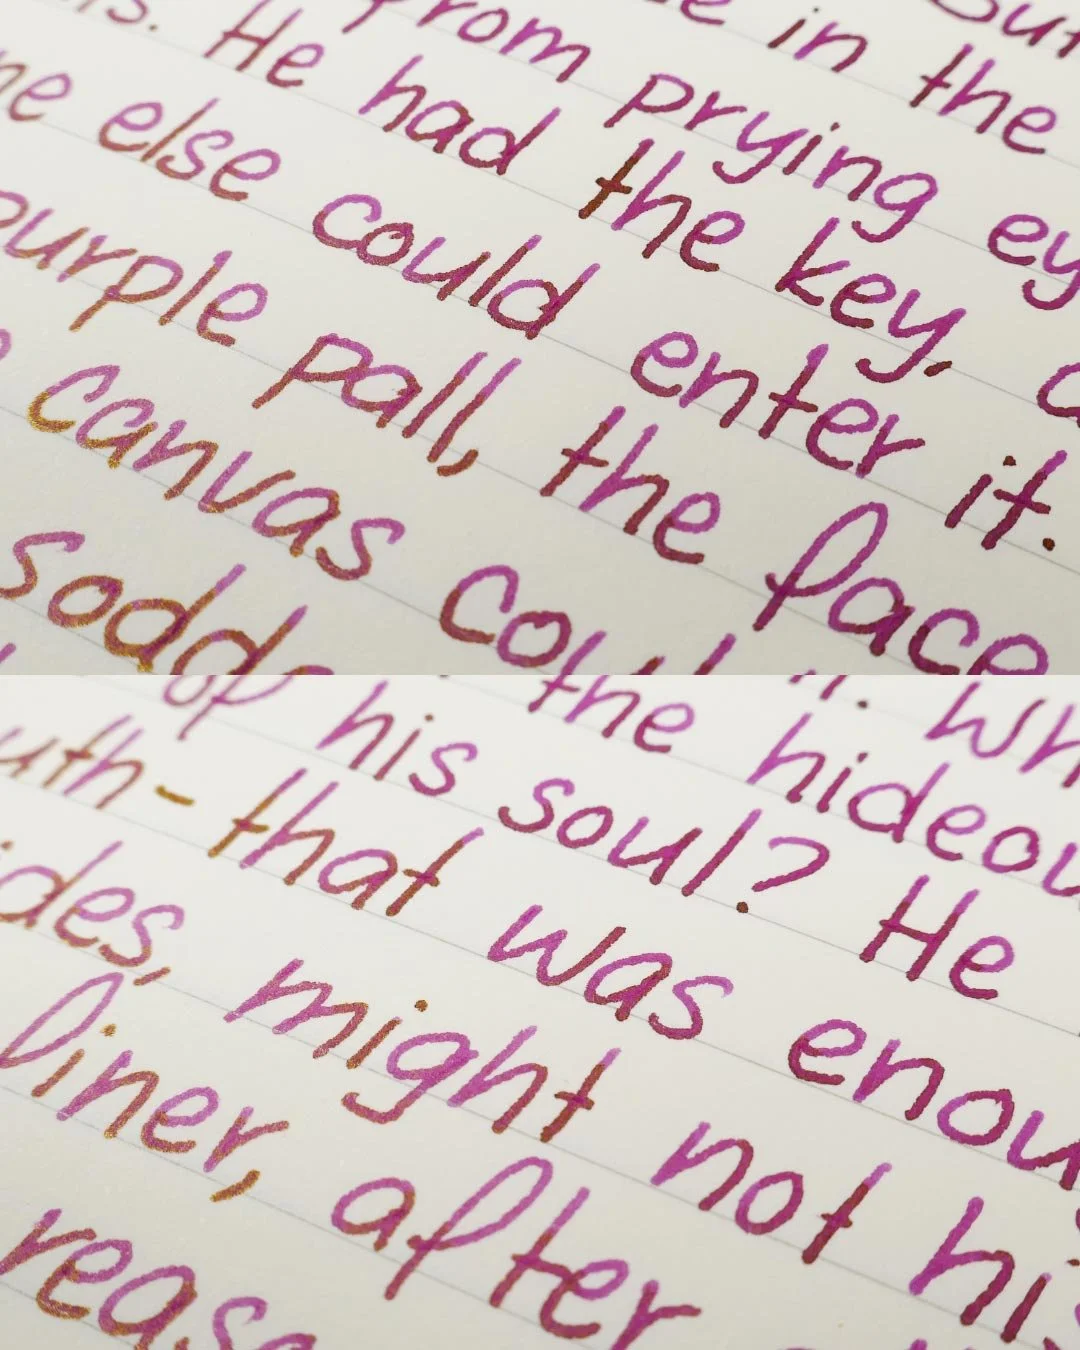 But
in the
from prying ey
is. He had the key, a
ne else could enter it.
purple pall, the face
canvas coul
sodde
it. Wh
the hideou
of his soul? He
uth- that was enou
ides, might not hi
finer, after
reaso